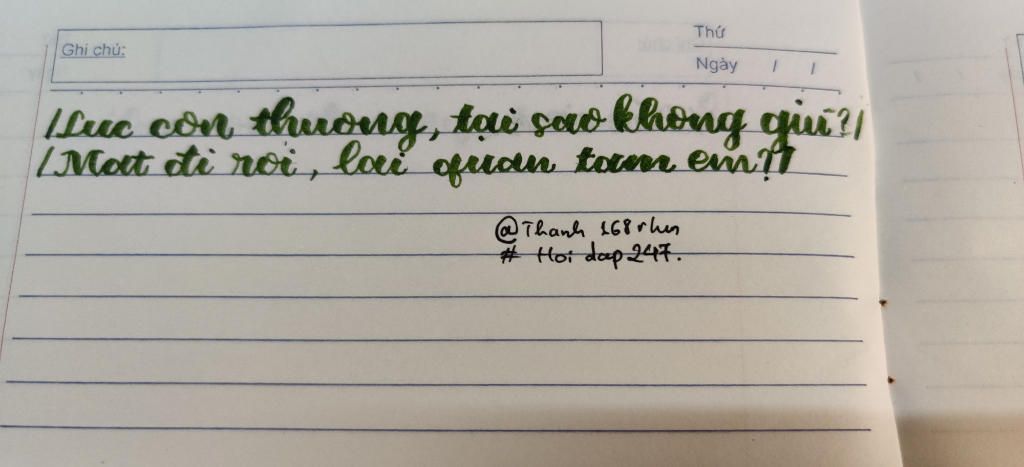 Ghi chú:
Thứ
Ngày / /
/Luc con thuong, tại sao không giu?/
/Mat đi roi, lai quan tam em?/
@Thanh 168
# Hoi dap 247.